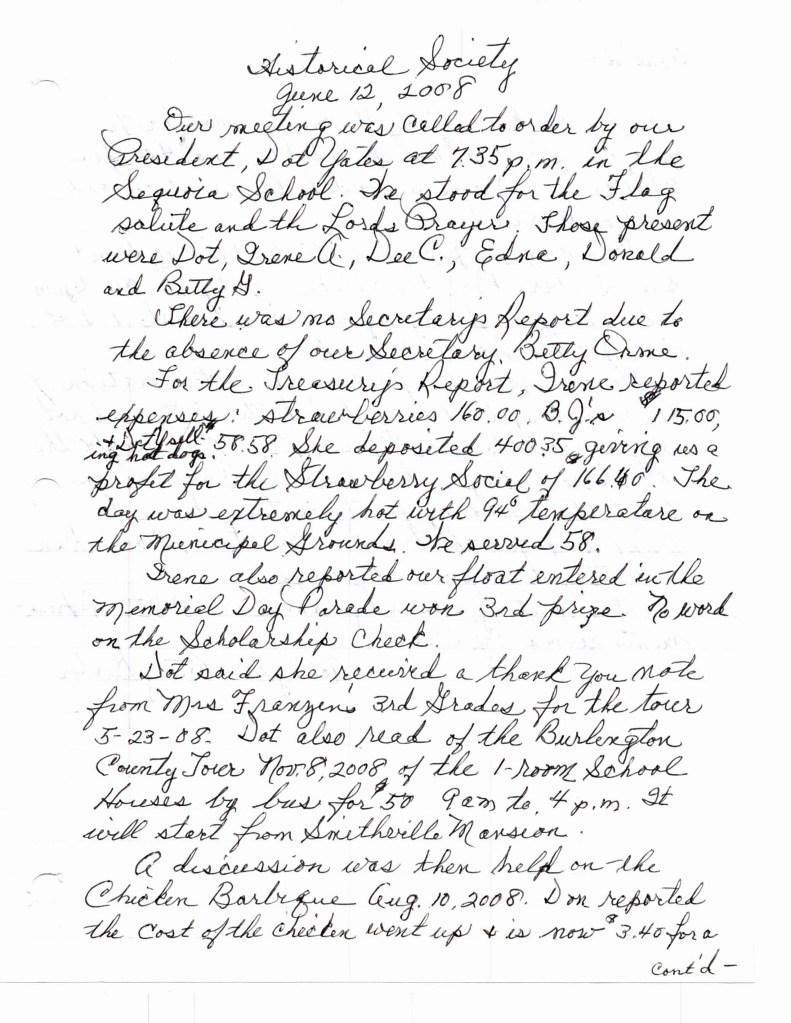 Historical Society
June 12, 2008
Our meeting was called to order by our
President, Dot Yates at 7.35 p.m. in the
Sequoia School. We stood for the Flag
salute and th Lords Prayer. Those present
were Dot, Irene A., Dee C., Edna, Donald
and Betty G.
There was no Secretary's Report due to
the absence of our Secretary, Betty Orme.
For the Treasury's Report, Irene reported
expenses: strawberries 160.00, B.J.'s $115.00,
& Dot Y sell-
ing hot dogs. $58.58. She deposited 400.35, giving us a
profit for the Strawberry Social of $166.40. The
day was extremely hot with 94° temperature on
the Municipel Grounds. We served 58.
Irene also reported our float entered in the
Memorial Day Parade won 3rd prize. No word
on the Scholarship Check.
Dot said she received a thank You note
from Mrs Franzen's 3rd Grades for the tour
5-23-08. Dot also read of the Burlington
County Tour Nov. 8, 2008 of the 1-room School
Houses by bus for $50 9am to 4 p.m. It
will start from Smithville Mansion.
A discussion was then held on the
Chicken Barbque Aug. 10, 2008. Don reported
the cost of the chicken went up & is now $3.40 for a
cont'd -